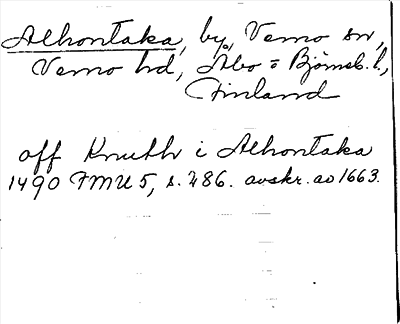 Alhontaka, by, Vemo sn,
Vemo hd, Åbo = Björneb. l.,
Finland
off Knuth i Alhontaka
1490 FMU 5, s. 486. avskr. av 1663.